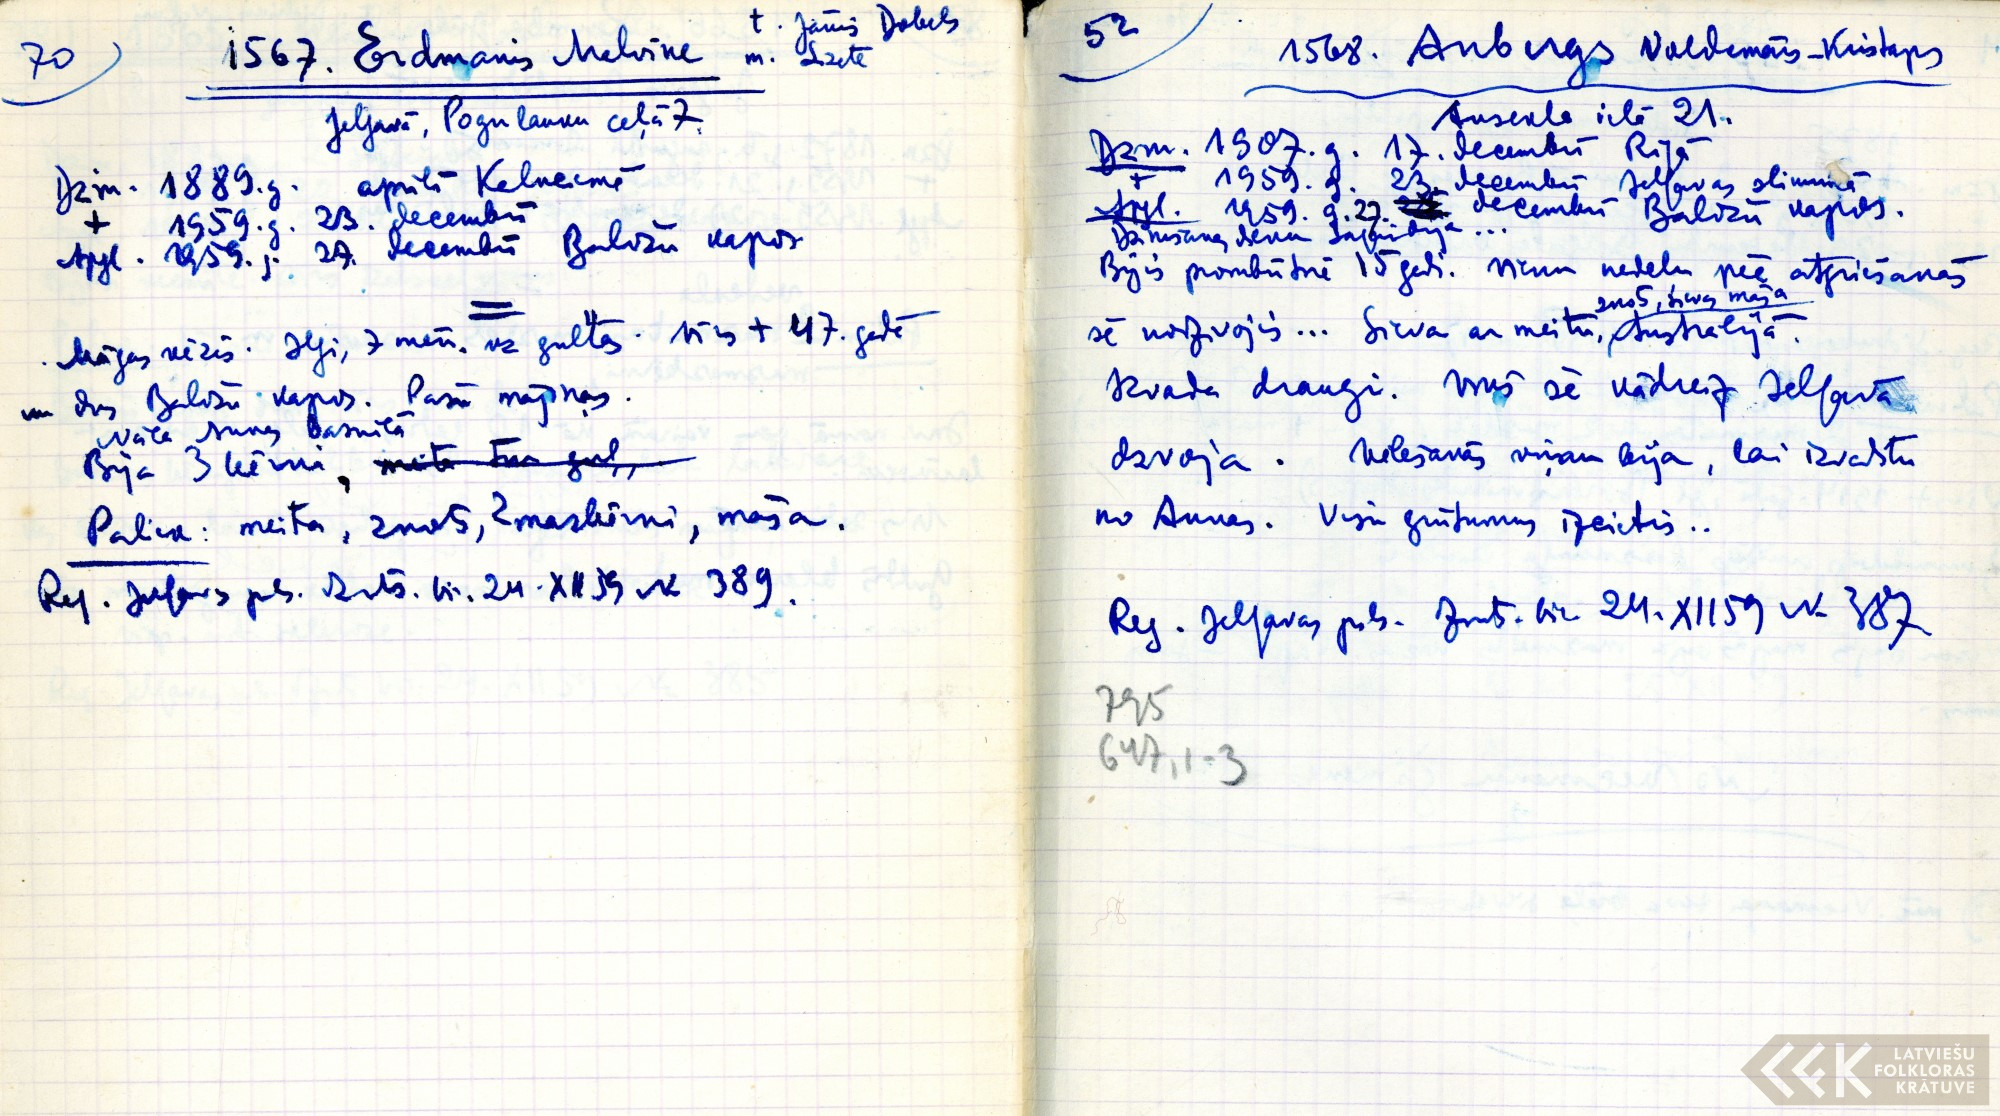 70
1567. Erdmanis Melvīne
t. Jānis Dobels
m. Lizete
Jelgavā, Pogulanku ceļā 7.
Dzim. 1889. g. aprīlī Kalnciemā
+ 1959. g. 23. decembrī
Apgl. 1959. g. 27. decembrī Baložu kapos
Māgas vēzis. Ilgi, 7 mēn. uz gultas. Vīrs + 47. gadā
un dus Baložu kapos. Pašu mājiņas.
Nāca Annas baznīcā
Bija 3 bērni, meita
Paliek: meita, znots, 2 mazbērni, māsa.
Reģ. Jelgavas pils. Dzimts. bir. 24. XII 59 Nr 389.
52
1568. Anbergs Voldemārs-Kristaps
Ausekļa ielā 21.
Dzim. 1907. g. 17. decembrī Rīgā
+ 1959. g. 23. decembrī Jelgavas slimnīcā
Apgl. 1959. g. 27. decembrī Baložu kapos.
Dzimšanas diena bija ...
Bijis prombūtnē 15 gadi. Vienu nedēļu pēc atgriešanās
znots, sievas māsa
še nodzīvojis ... Sieva ar meitu, Austrālijā.
Izvada draugi. Viņš še kādreiz Jelgavā
dzīvoja. Vēlēšanās viņam bija, lai izvadītu
no Annas. Visu grūtumus izcietis ..
Reģ. Jelgavas pils. Dzimts. bir. 24. XII 59 Nr 387
795
647,1-3
LATVIEŠU
FOLKLORAS
KRĀTUVE